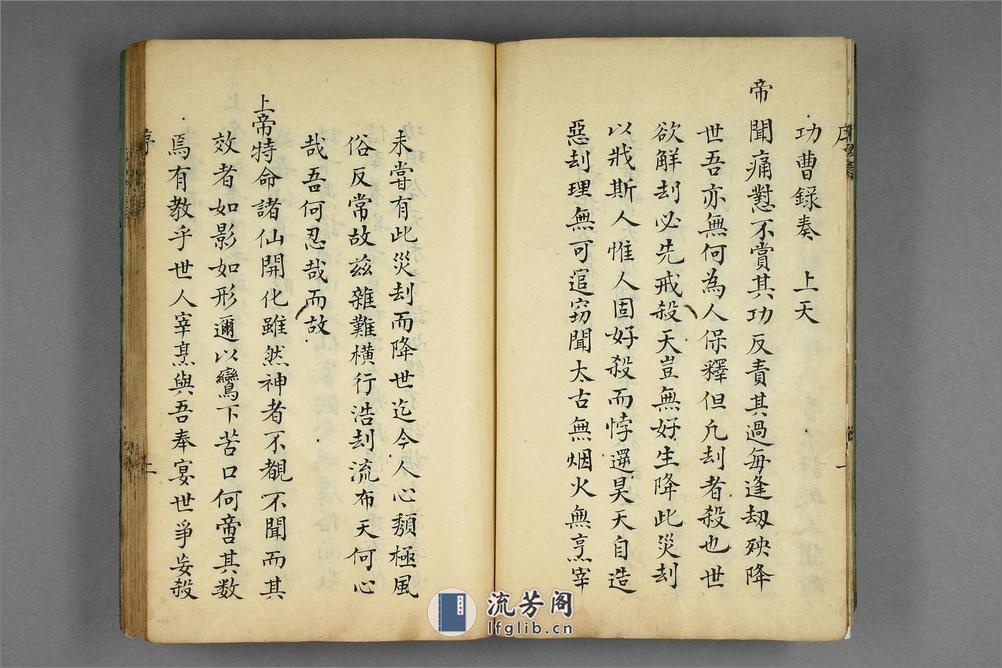 功曹録奏　上天
帝聞痛懟不賞其功反責其過每逢刼殃降
世吾亦無何為人保釋但凢刦者殺也世
欲解刦必先戒殺天豈無好生降此災刦
以戕斯人惟人固好殺而悖逆昊天自造
惡刦理無可逭竊聞太古無烟火無烹宰
未嘗有此災刦而降世迄今人心頽極風
俗反常故兹雜難横行浩刦流布天何心
哉吾何忍哉而故
上帝特命諸仙開化雖然神者不覩不聞而其
效者如影如形邇以鸞下苦口何啻其数
焉有教乎世人宰烹與吾奉宴世爭妄殺
序
流芳阁
lfglib.cn